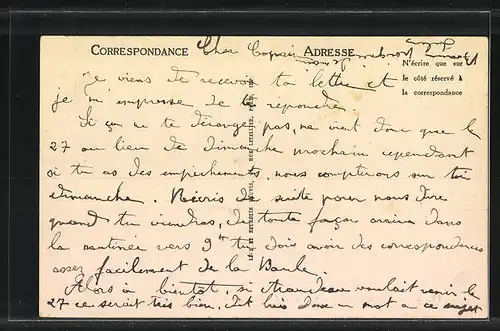 CORRESPONDANCE
ADRESSE
Cher Copain
N'écrire que sur
le côté réservé à
la correspondance
Je viens de recevoir ta lettre et
je m'empresse de te repondre.
Si ça ne te dérange pas, ne vient donc que le
27 au lieu de dimanche prochain cependant
si tu as des empechements, nous compterons sur toi
dimanche. Récris de suite pour nous dire
quand tu viendras, de toute façon arrive dans
la matinée vers 9h tu dois avoir des correspondances
assez facilement de la Baule.
Alors à bientôt, si voulait venir le
27 ce serait très bien, dit lui donc un mot a ce sujet